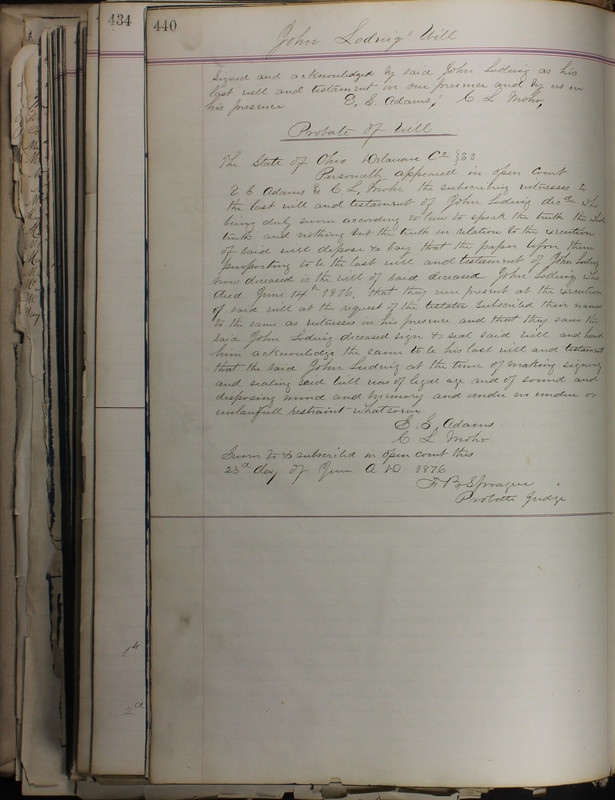 434
440
John Lodwig's Will
Signed and acknowledged by said John Lodwig as his
last will and testament in our presence and by us in
his presence E. E. Adams, C L Mohr,
Probate of Will
The State of Ohio Delaware Co SS
Personally appeared in open Court
E E Adams & C L, Mohr the subscribing witnesses to
the last will and testament of John Lodwig decd who
being duly sworn according to law to speak the truth the whole
truth and nothing but the truth in relation to the execution
of said will depose & say that the paper before them
purporting to be the last will and testament of John Lodwig
now deceased is the will of said deceased John Lodwig who
died June 14th 1876, that they were present at the execution
of said will at the request of the testator subscribed their names
to the same as witnesses in his presence and that they saw the
said John Lodwig deceased sign & seal said will and heard
him acknowledge the same to be his last will and testament
that the said John Ludwig at the time of making signing
and sealing said will was of legal age and of sound and
disposing mind and memory and under no undue or
unlawfull restraint whatsoever
E. E. Adams
C L Mohr
Sworn to & subscribed in open court this
23d day of June A D 1876
F B Sprague
Probate Judge
1st
2d